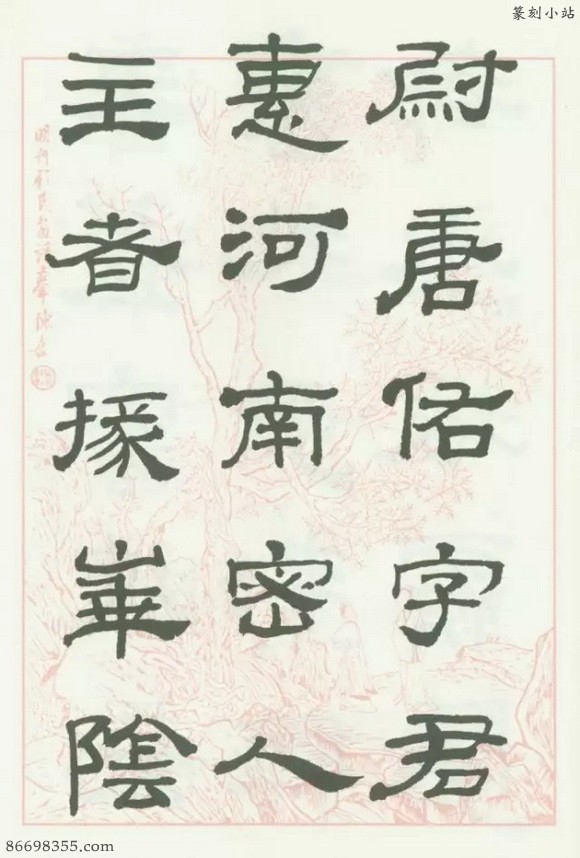 篆刻小站
尉唐佑字君
惠河南密人
主者掾崋陰
86698355.com